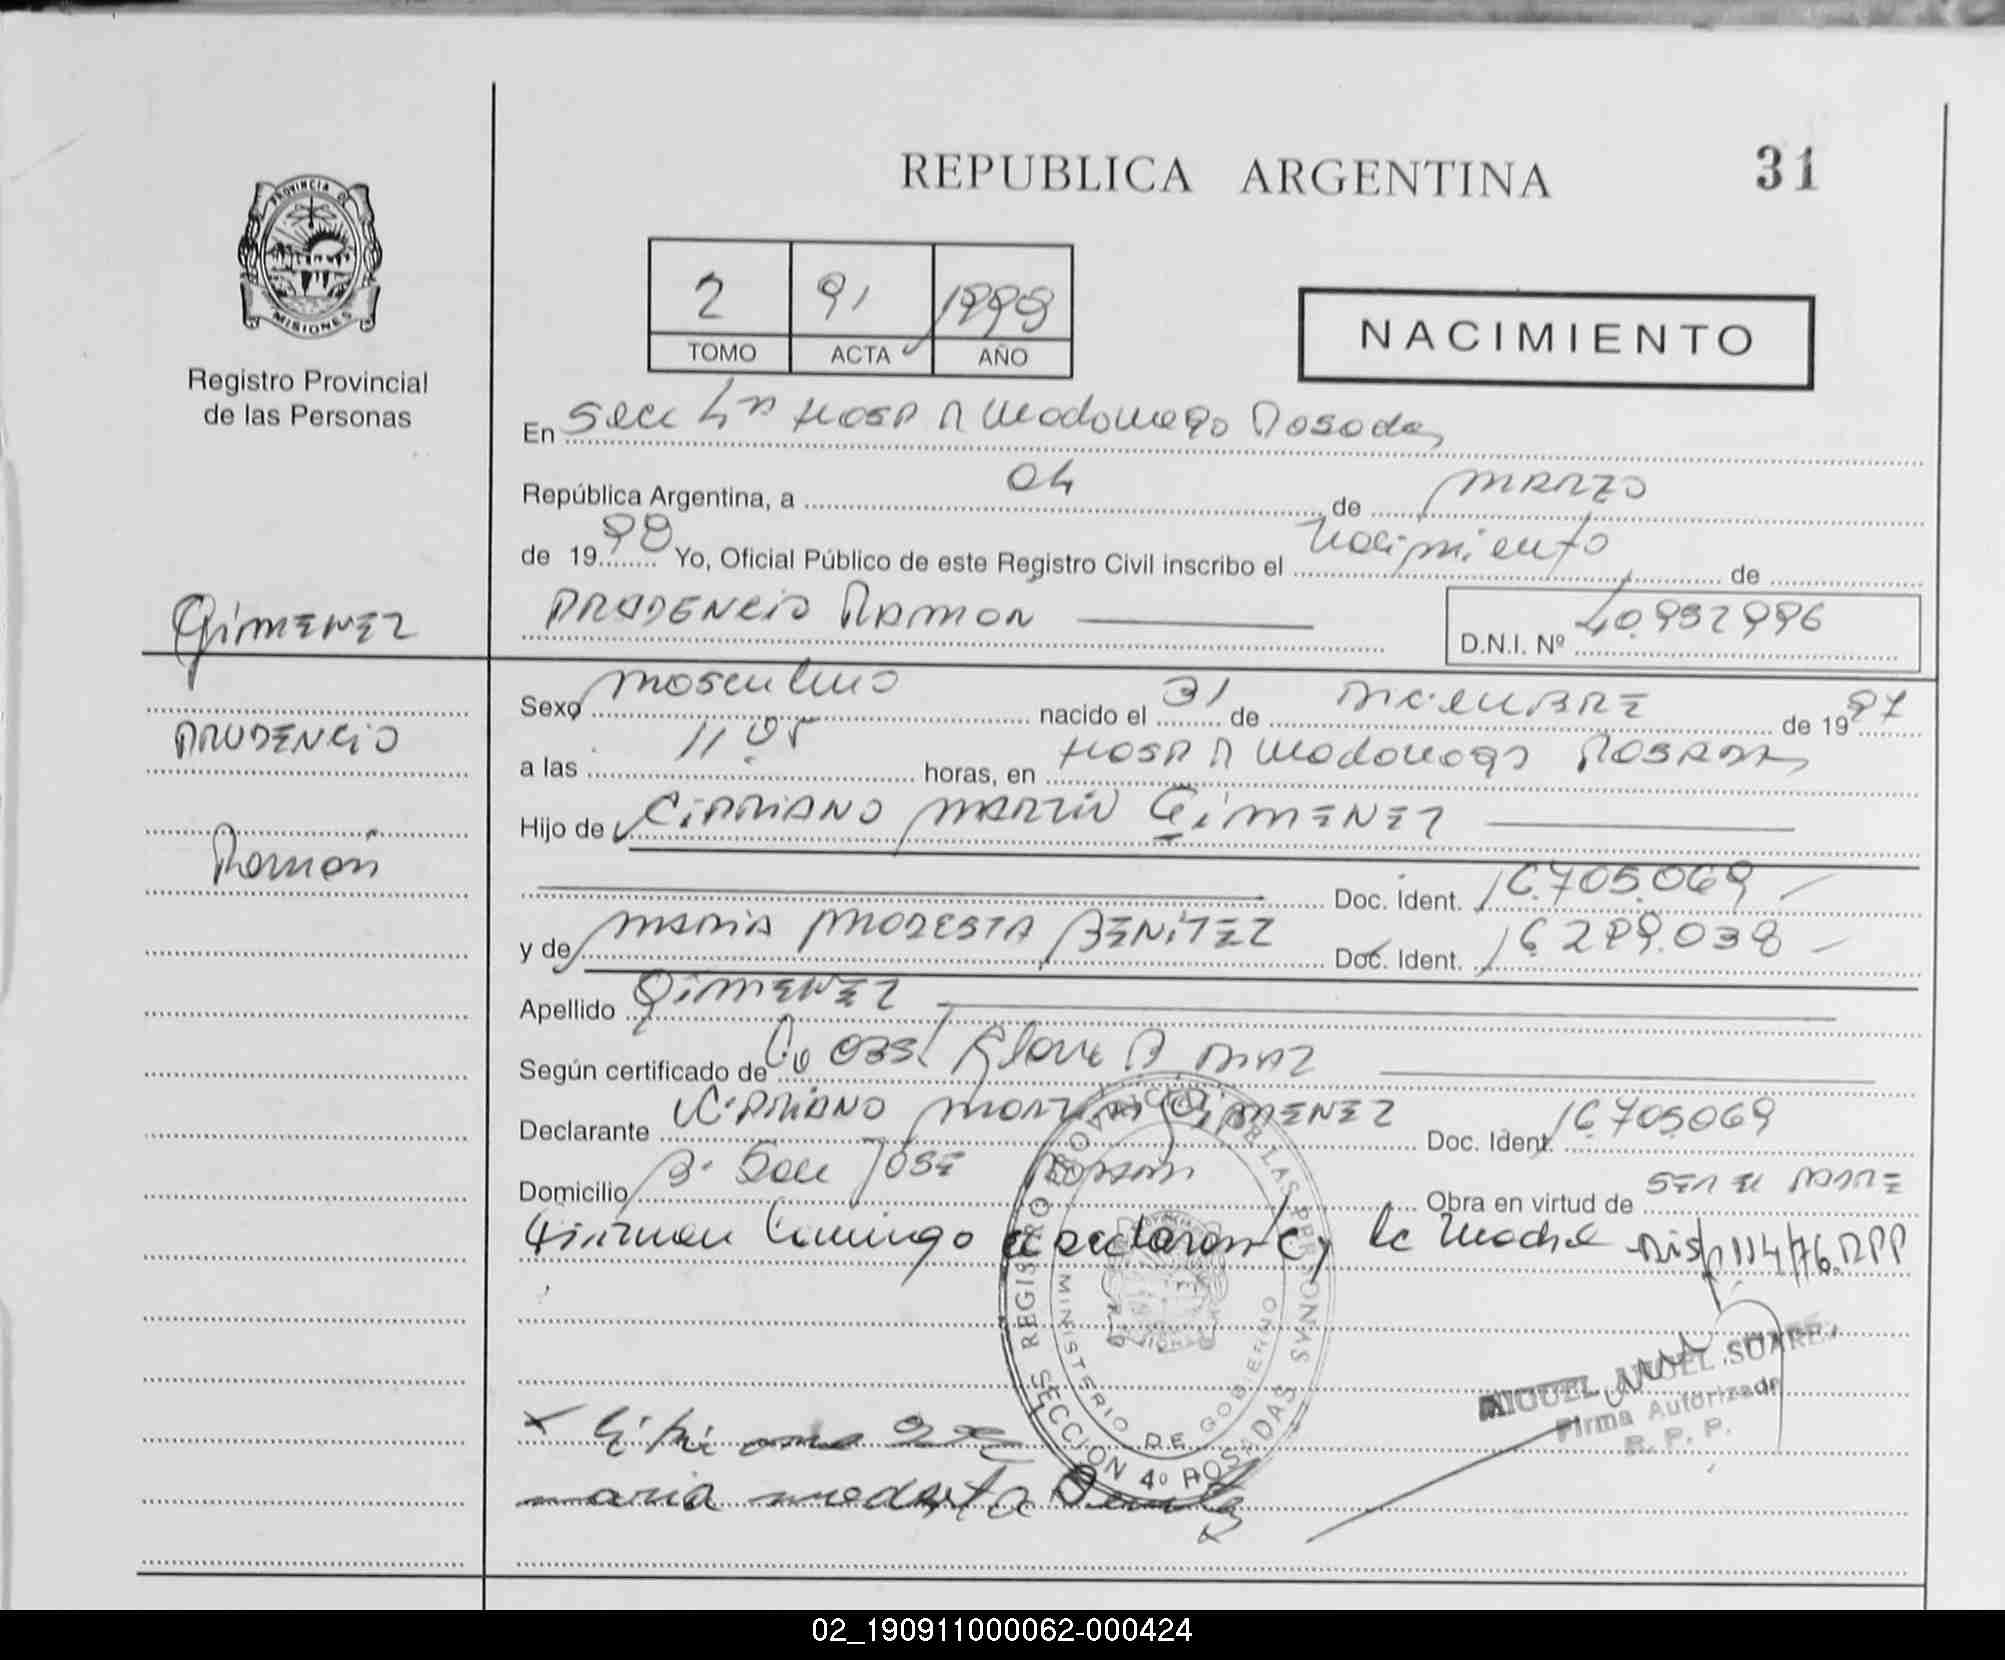 REPUBLICA ARGENTINA
31
PROVINCIA DE
MISIONES
Registro Provincial
de las Personas
2 91 1998
TOMO ACTA AÑO
NACIMIENTO
En Secc 4ta Hosp R Madariaga Posadas
República Argentina, a 04 de MARZO
de 1998 Yo, Oficial Público de este Registro Civil inscribo el Nacimiento de
GIMENEZ
PRUDENCIO RAMON
D.N.I. Nº 40.952996
PRUDENCIO
Ramón
Sexo masculino nacido el 31 de DICIEMBRE de 1997
a las 11.05 horas, en HOSP R Madariaga POSADAS
Hijo de CIPRIANO MARTIN GIMENEZ
Doc. Ident. 16.705.069
y de MARIA MODESTA BENITEZ Doc. Ident. 16.289.038
Apellido GIMENEZ
Según certificado de OBST DIAZ
Declarante CIPRIANO MARTIN GIMENEZ Doc. Ident. 16.705069
Domicilio B. San JOSE Obra en virtud de SER EL PADRE
Firman Conmigo el declarante y la Madre Disp 114/76.RPP
REGISTRO PROVINCIAL DE LAS PERSONAS
MINISTERIO DE GOBIERNO
SECCION 4º POSADAS
MIGUEL ANGEL SUAREZ
Firma Autorizada
R. P. P.
maria modesta Benitez
02_190911000062-000424